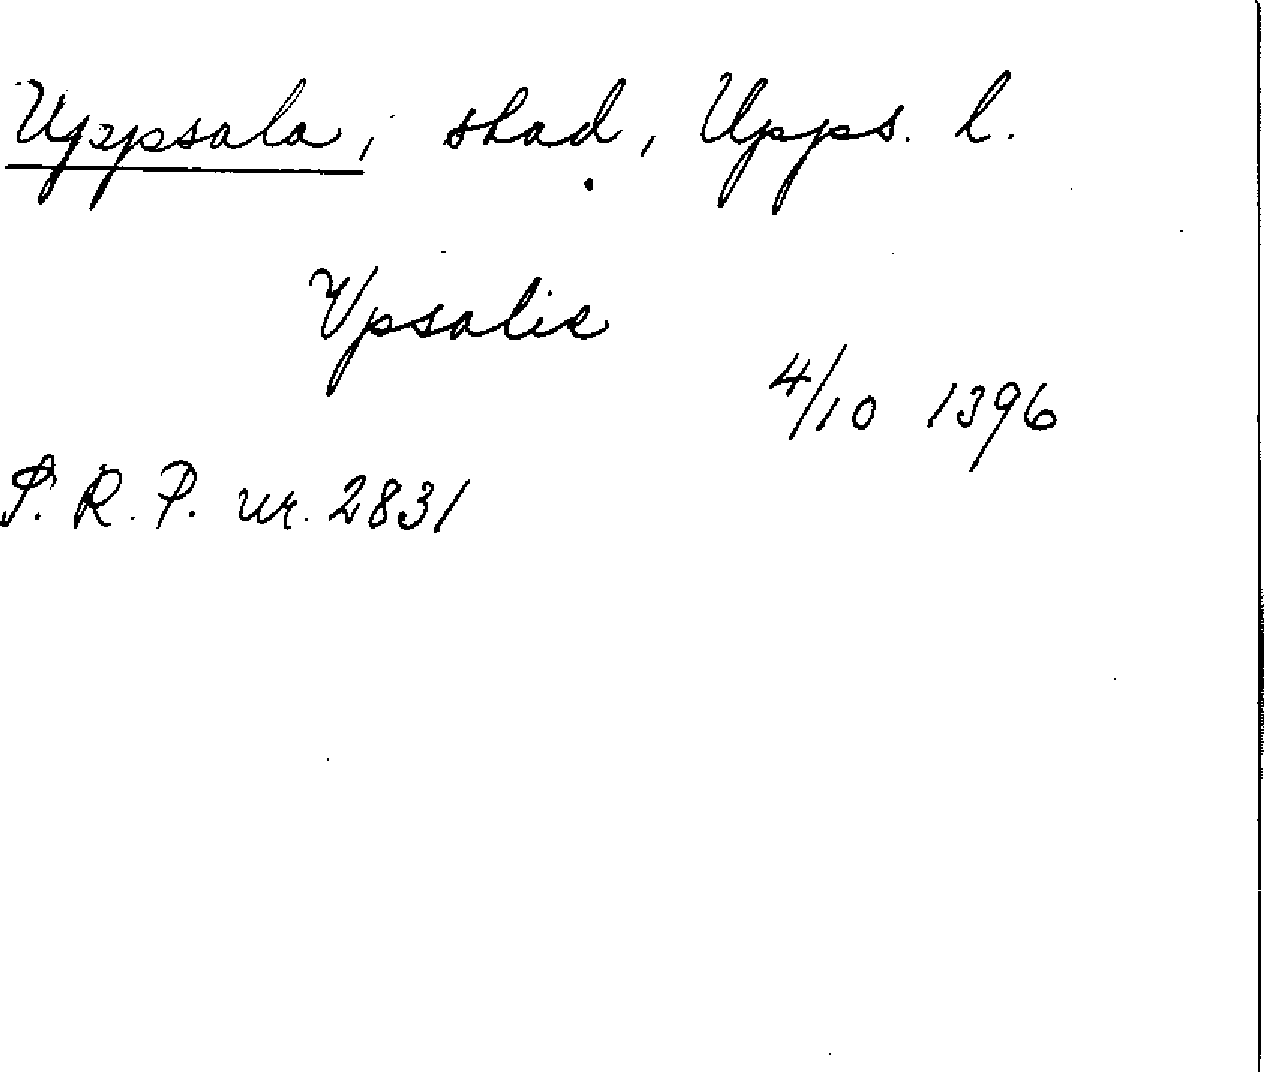 Uppsala, stad, Upps. l.
Vpsalie
4/10 1396
S. R. P. nr. 2831